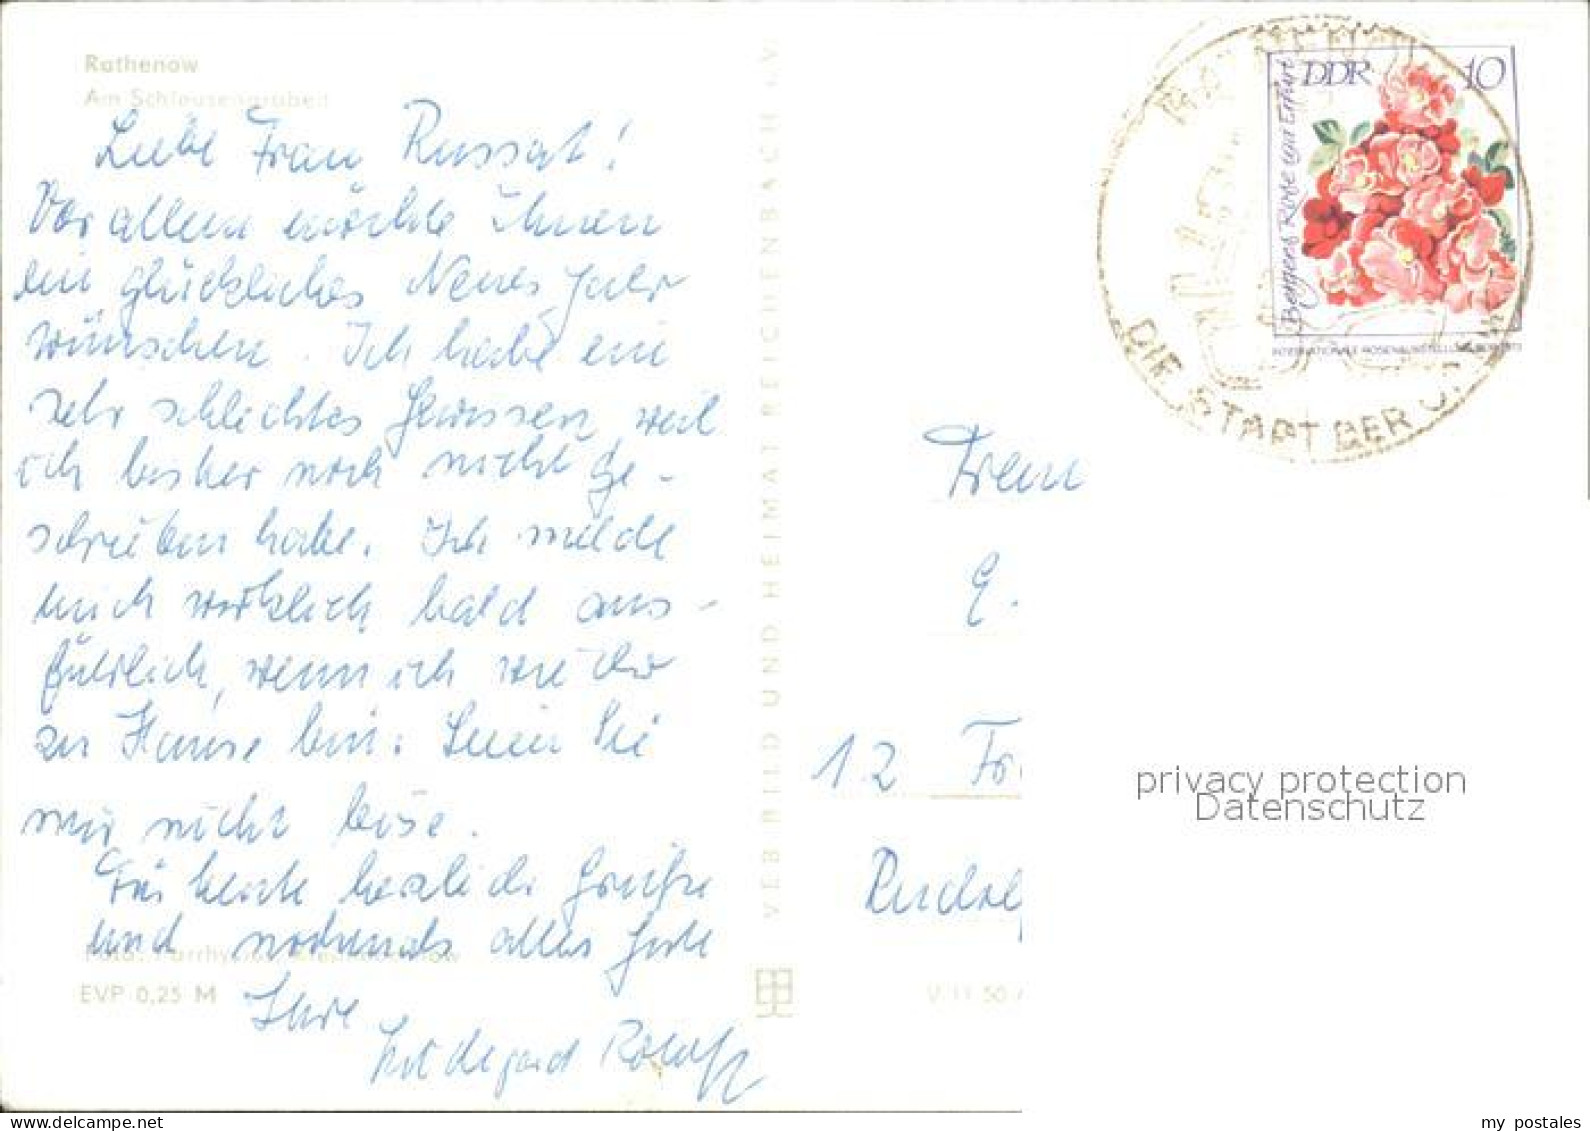 Rathenow
Am Schleusengraben
Liebe Frau Russat!
Vor allem möchte Ihnen
ein glückliches Neues Jahr
wünschen. Ich habe ein
sehr schlechtes Gewissen, weil
ich bisher noch nicht ge-
schrieben habe. Ich melde
mich wirklich bald aus-
führlich, wenn ich wieder
zu Hause bin. Seien Sie
mir nicht böse.
Für heute herzliche Grüße
und nochmals alles Gute
Ihre
Hildegard
EVP 0,25 M
VEB BILD UND HEIMAT REICHENBACH i. V.
V 11 50
RATHENOW
DIE STADT DER OPTIK
DDR 10
Bergers Rose von Erfurt
INTERNATIONALE ROSENAUSSTELLUNG 1972
Frau
E.
12 Fr
Rudolf
privacy protection
Datenschutz
my postales